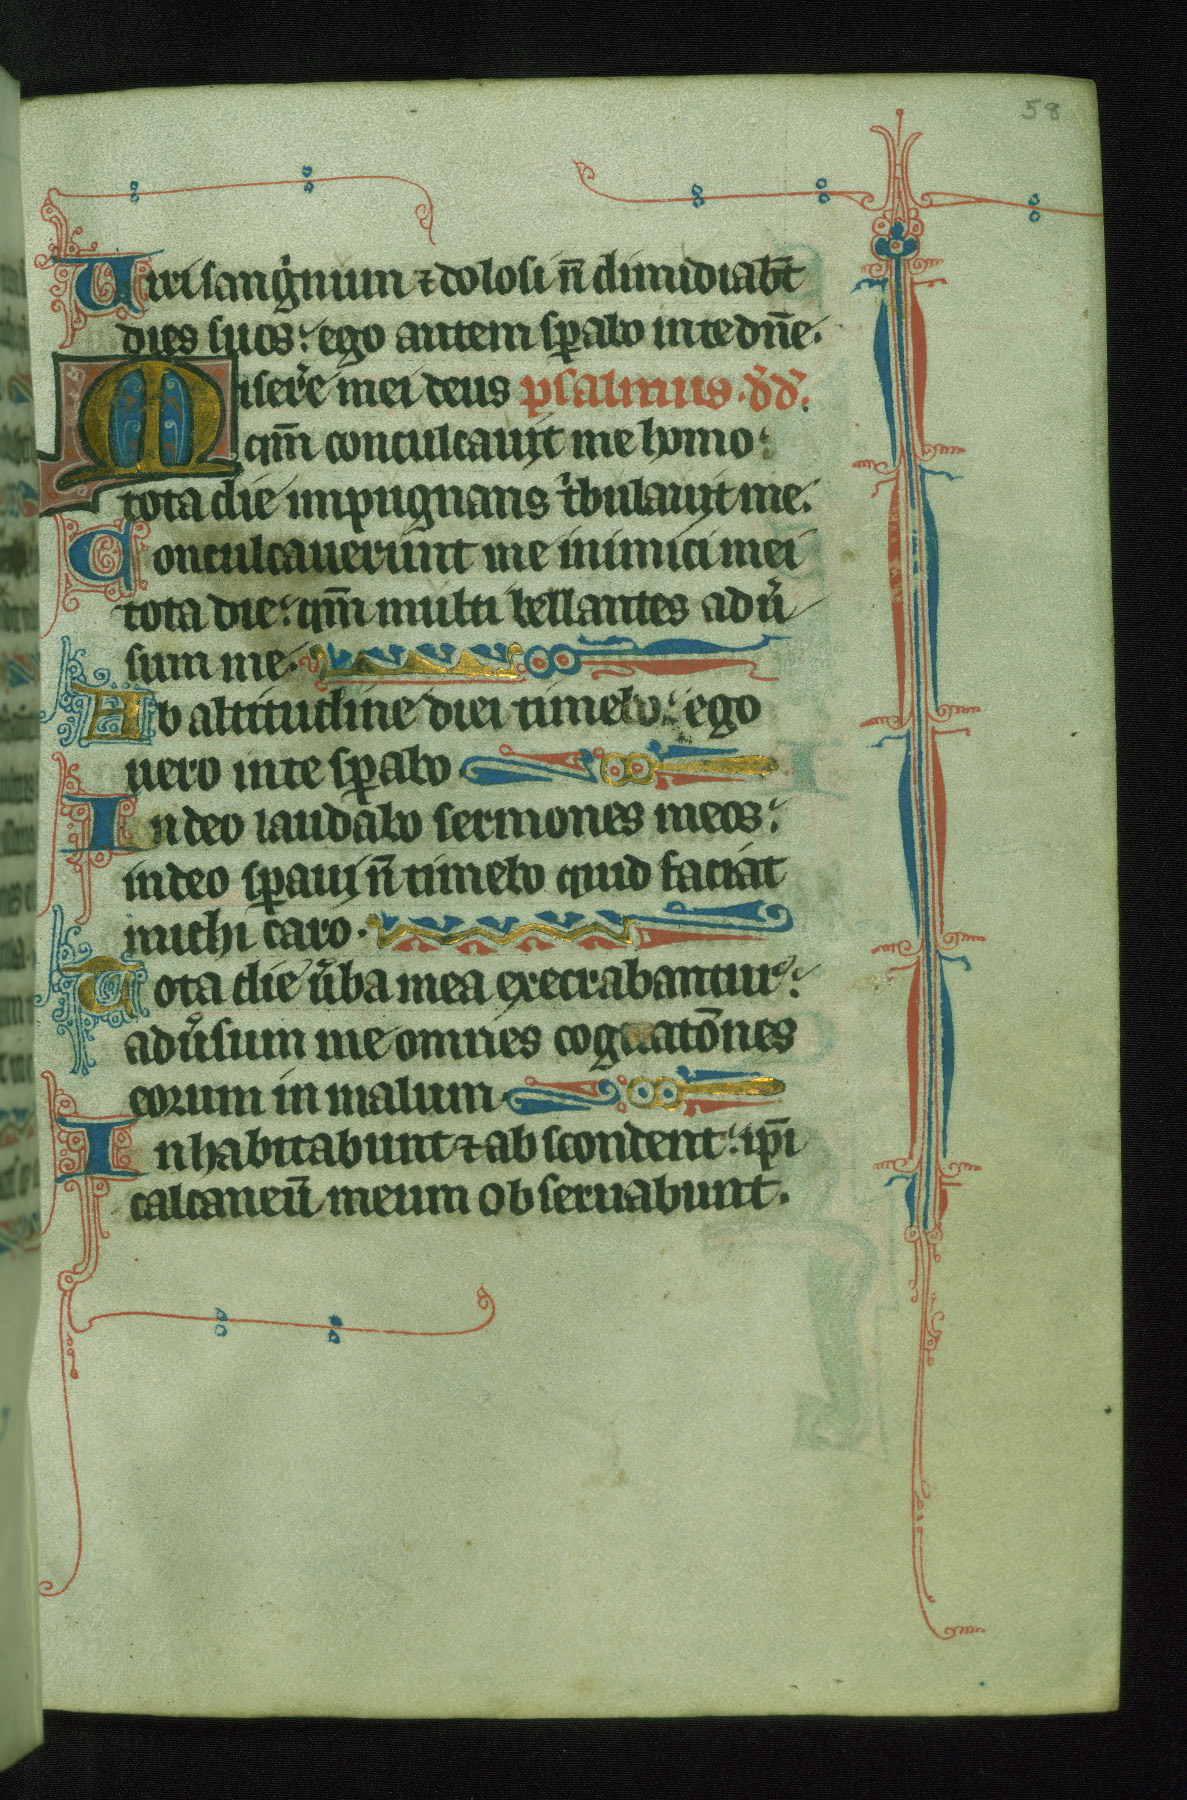 58
Uiri sanguinum ⁊ dolosi n̄ dimidiab̄t
dies suos: ego autem sꝑabo in te dn̄e.
Misere mei deus psalmus. dd̄.
qm̄ conculcauit me homo:
tota die inpugnans tͥbulauit me.
Conculcauerunt me inimici mei
tota die: qm̄ multi bellantes adu̾
sum me.
Ab altitudine diei timebo: ego
uero in te sꝑabo
In deo laudabo sermones meos:
in deo sꝑaui n̄ timebo quid faciat
michi caro.
Tota die u̾ba mea execrabantur:
adu̾sum me omnes cogitatōnes
eorum in malum.
Inhabitabunt ⁊ abscondent: ip̄i
calcaneū meum obseruabunt.